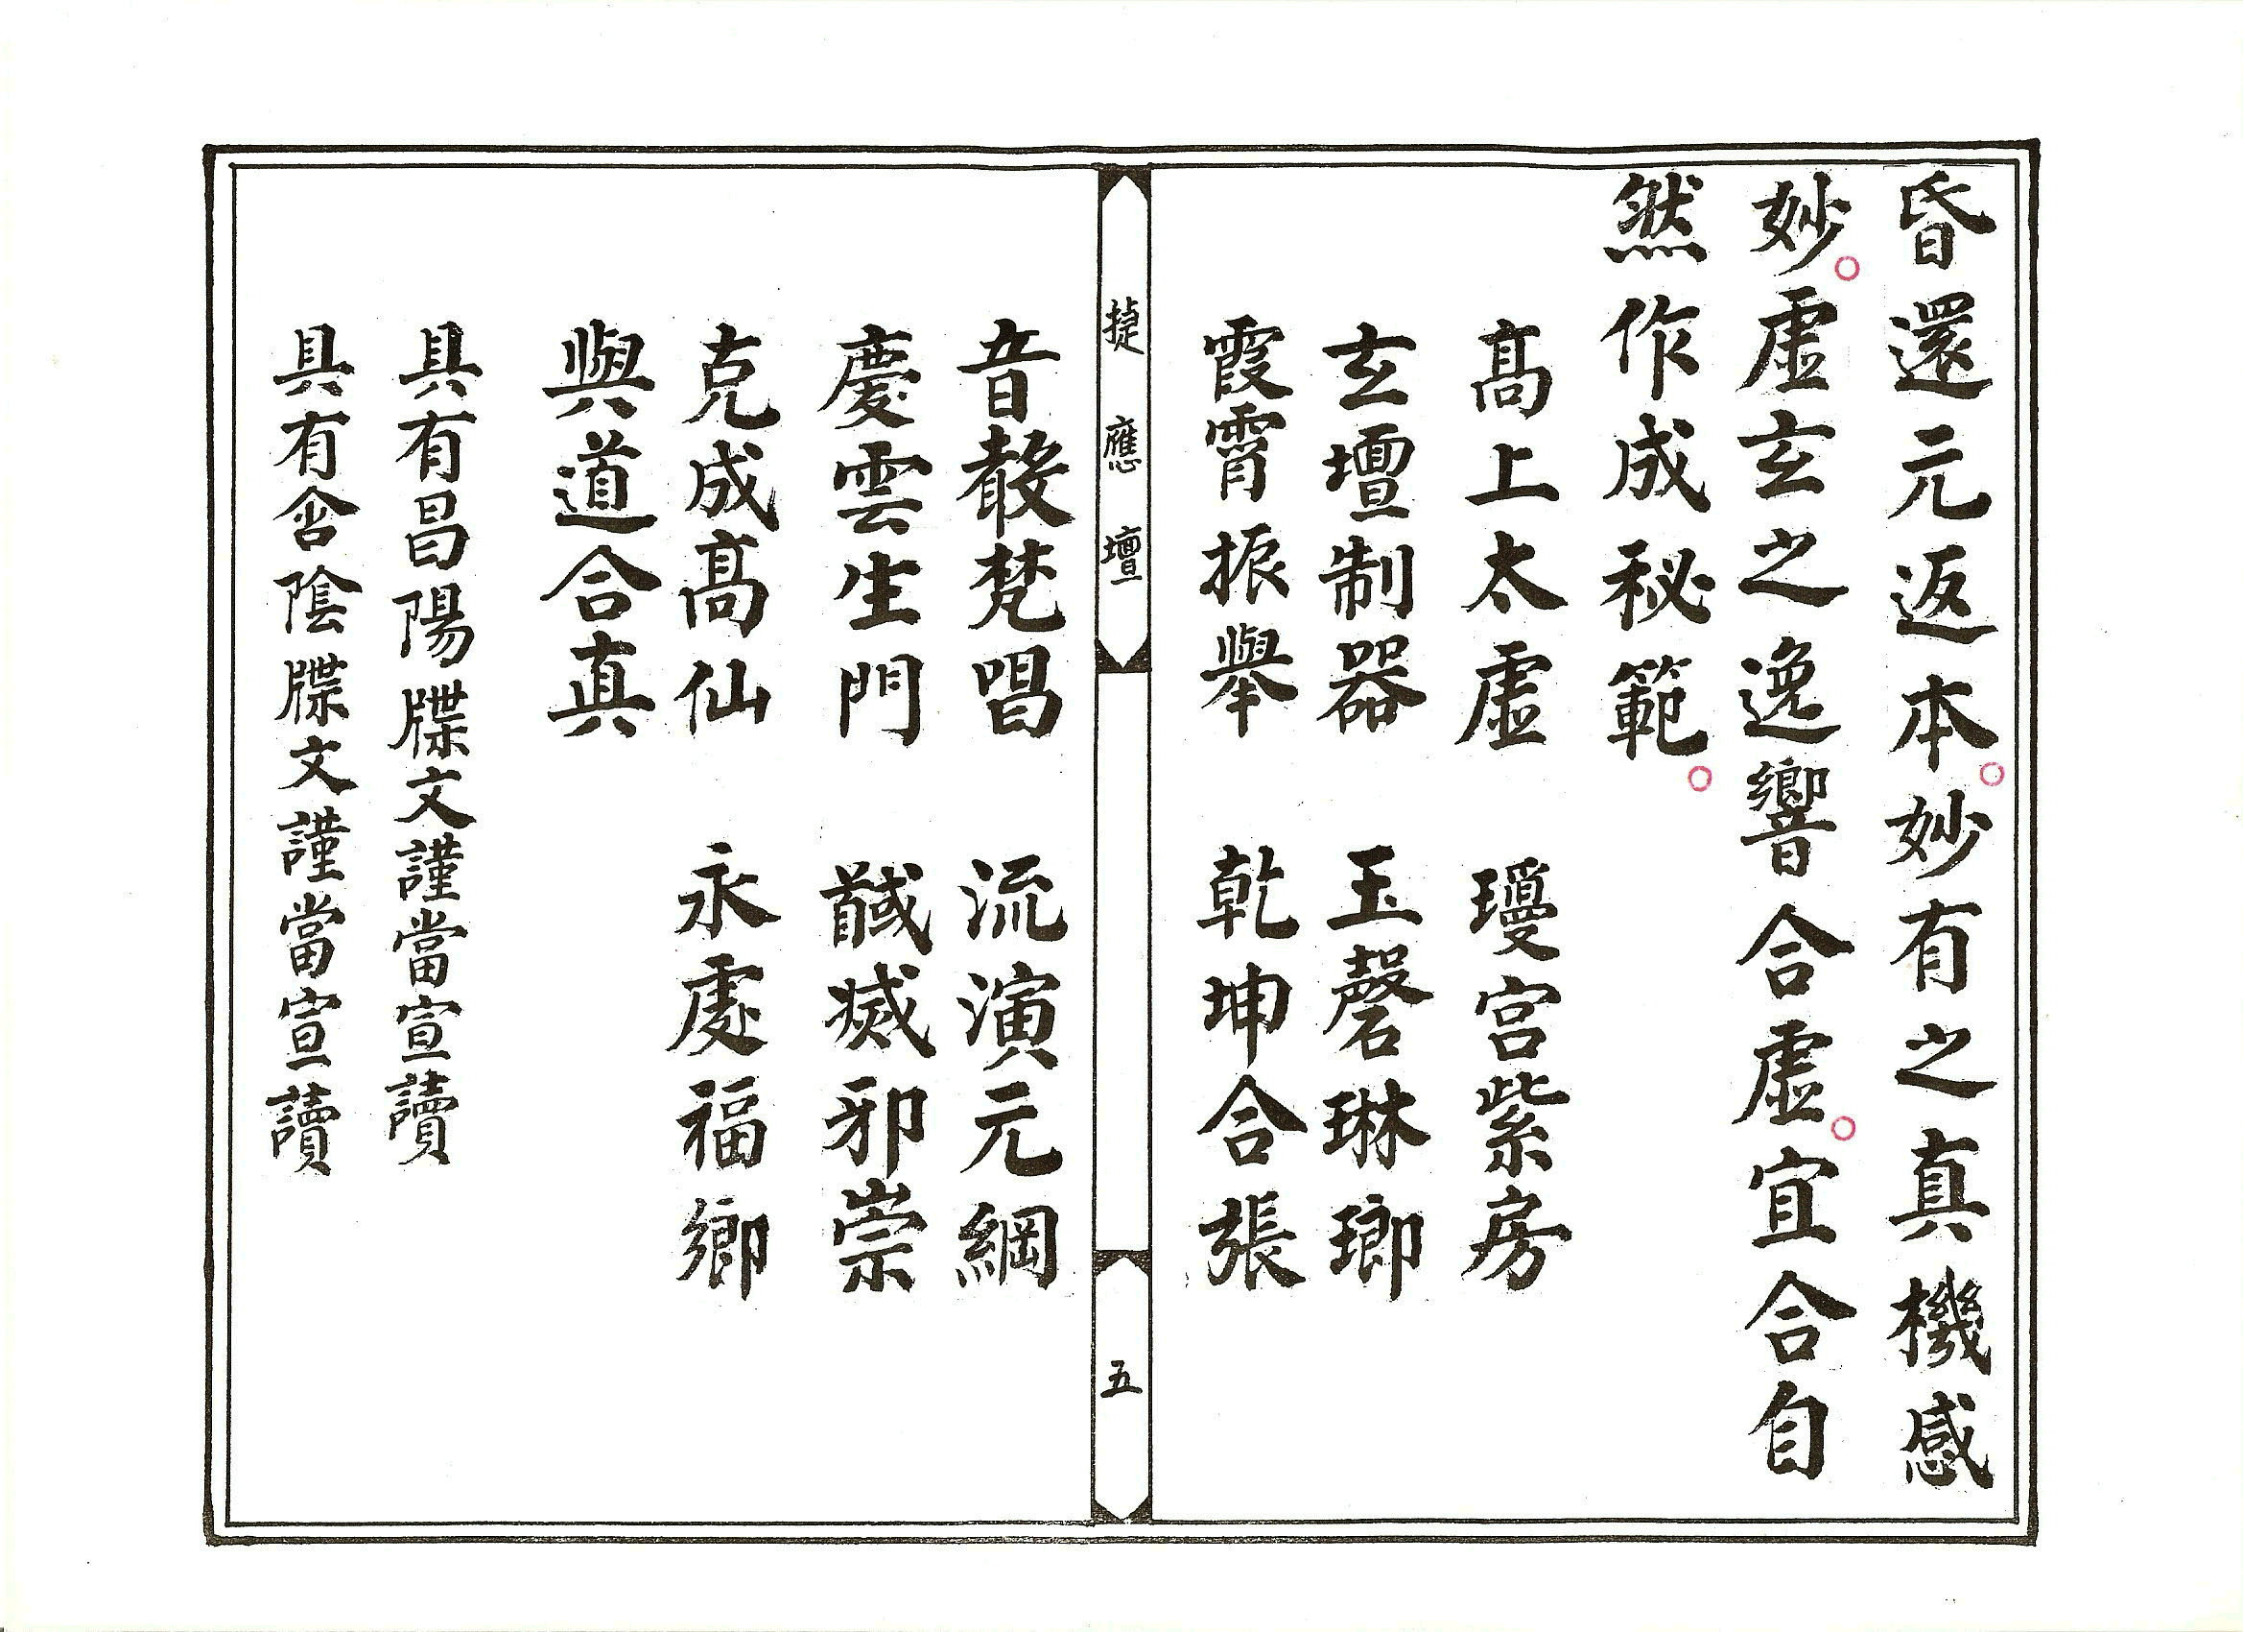 昏還元返本。妙有之真機感
妙。虛玄之逸響合虛。宜合自
然作成秘範。
高上太虛　瓊宮紫房
玄壇制器　玉磬琳瑯
霞霄振舉　乾坤合張
捷應壇
五
音聲梵唱　流演元綱
慶雲生門　馘滅邪祟
克成高仙　永處福鄉
與道合真
具有昌陽牒文謹當宣讀
具有含陰牒文謹當宣讀